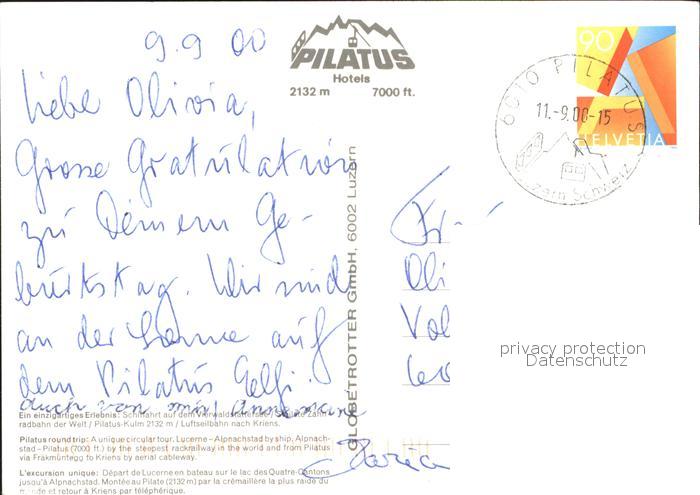 9.9 00
PILATUS
Hotels
2132 m 7000 ft.
90
6010 PILATUS
11.-9.00-15
HELVETIA
Luzern Schweiz
Liebe Olivia,
Grosse Gratulation
zu Deinem Ge-
burtstag. Wir sind
an der Sonne auf
dem Pilatus
auch von mir! Annemarie
GLOBETROTTER GmbH, 6002 Luzern
Oli
privacy protection
Datenschutz
Ein einzigartiges Erlebnis: Schiffahrt auf dem Vierwaldstättersee / steilste Zahn-
radbahn der Welt / Pilatus-Kulm 2132 m / Luftseilbahn nach Kriens.
Pilatus round trip: A unique circular tour. Lucerne – Alpnachstad by ship, Alpnach-
stad – Pilatus (7000 ft.) by the steepest rackrailway in the world and from Pilatus
via Fräkmüntegg to Kriens by aerial cableway.
L'excursion unique: Départ de Lucerne en bateau sur le lac des Quatre-Cantons
jusqu'à Alpnachstad. Montée au Pilate (2132 m) par la crémaillère la plus raide du
monde et retour à Kriens par téléphérique.